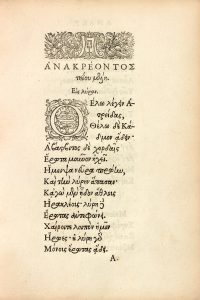 ΑΝΑΚΡΕΟΝΤΟΣ
Τηΐου μέλη.
Εἰς λύραν.
Θέλω λέγειν Ἀ-
τρείδας,
Θέλω δὲ Κά-
δμον ᾄδειν·
Ἁ βάρβιτος δὲ χορδαῖς
Ἔρωτα μοῦνον ἠχεῖ.
Ἤμειψα νεῦρα πρώην,
Καὶ τὴν λύρην ἅπασαν·
Κᾀγὼ μὲν ᾖδον ἄθλους
Ἡρακλέους· λύρη δ'
Ἔρωτας ἀντεφώνει.
Χαίροιτε λοιπὸν ἡμῖν
Ἥρωες· ἡ λύρη γὸ
Μόνους ἔρωτας ᾄδει.
A.